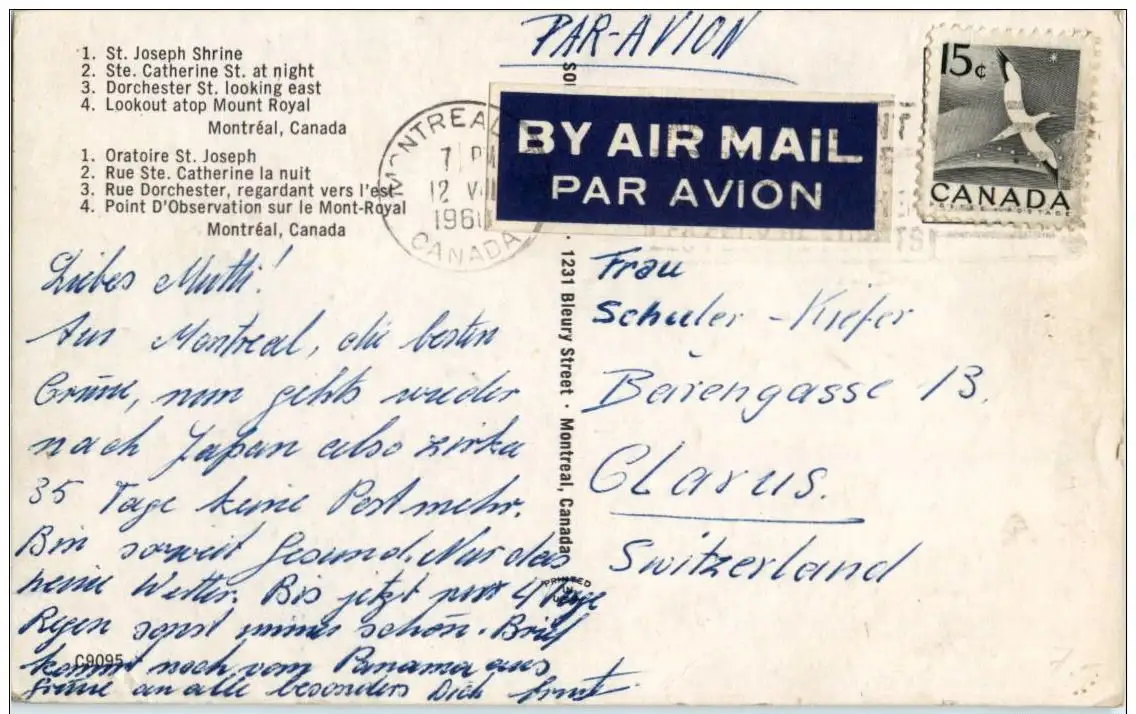 PAR-AVION
1. St. Joseph Shrine
2. Ste. Catherine St. at night
3. Dorchester St. looking east
4. Lookout atop Mount Royal
Montréal, Canada
1. Oratoire St. Joseph
2. Rue Ste. Catherine la nuit
3. Rue Dorchester, regardant vers l'est
4. Point D'Observation sur le Mont-Royal
Montréal, Canada
MONTREAL
7 PM
12 VII
196
CANADA
BY AIR MAIL
PAR AVION
15¢
CANADA
POSTES · POSTAGE
Liebes Mutti!
Aus Montreal, die besten
Grüsse, nun gehts wieder
nach Japan also zirka
35 Tage keine Post mehr.
Bin soweit Gesund. Nur das
Wetter. Bis jetzt nur 4 Tage
Regen sonst immer schön. Brief
kommt noch vom Panama aus
Grüsse an alle besonders Dich Ernst
C9095
1231 Bleury Street · Montreal, Canada
PRINTED
Frau
Schuler-Kiefer
Bärengasse 13.
Glarus.
Switzerland